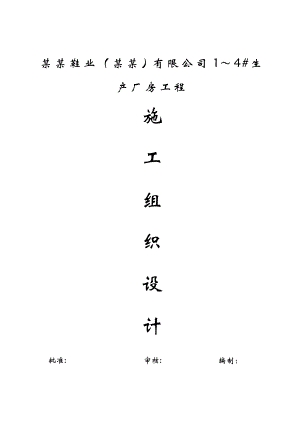 某某鞋业（某某）有限公司1～4#生
产厂房工程
施
工
组
织
设
计
批准： 审核： 编制：